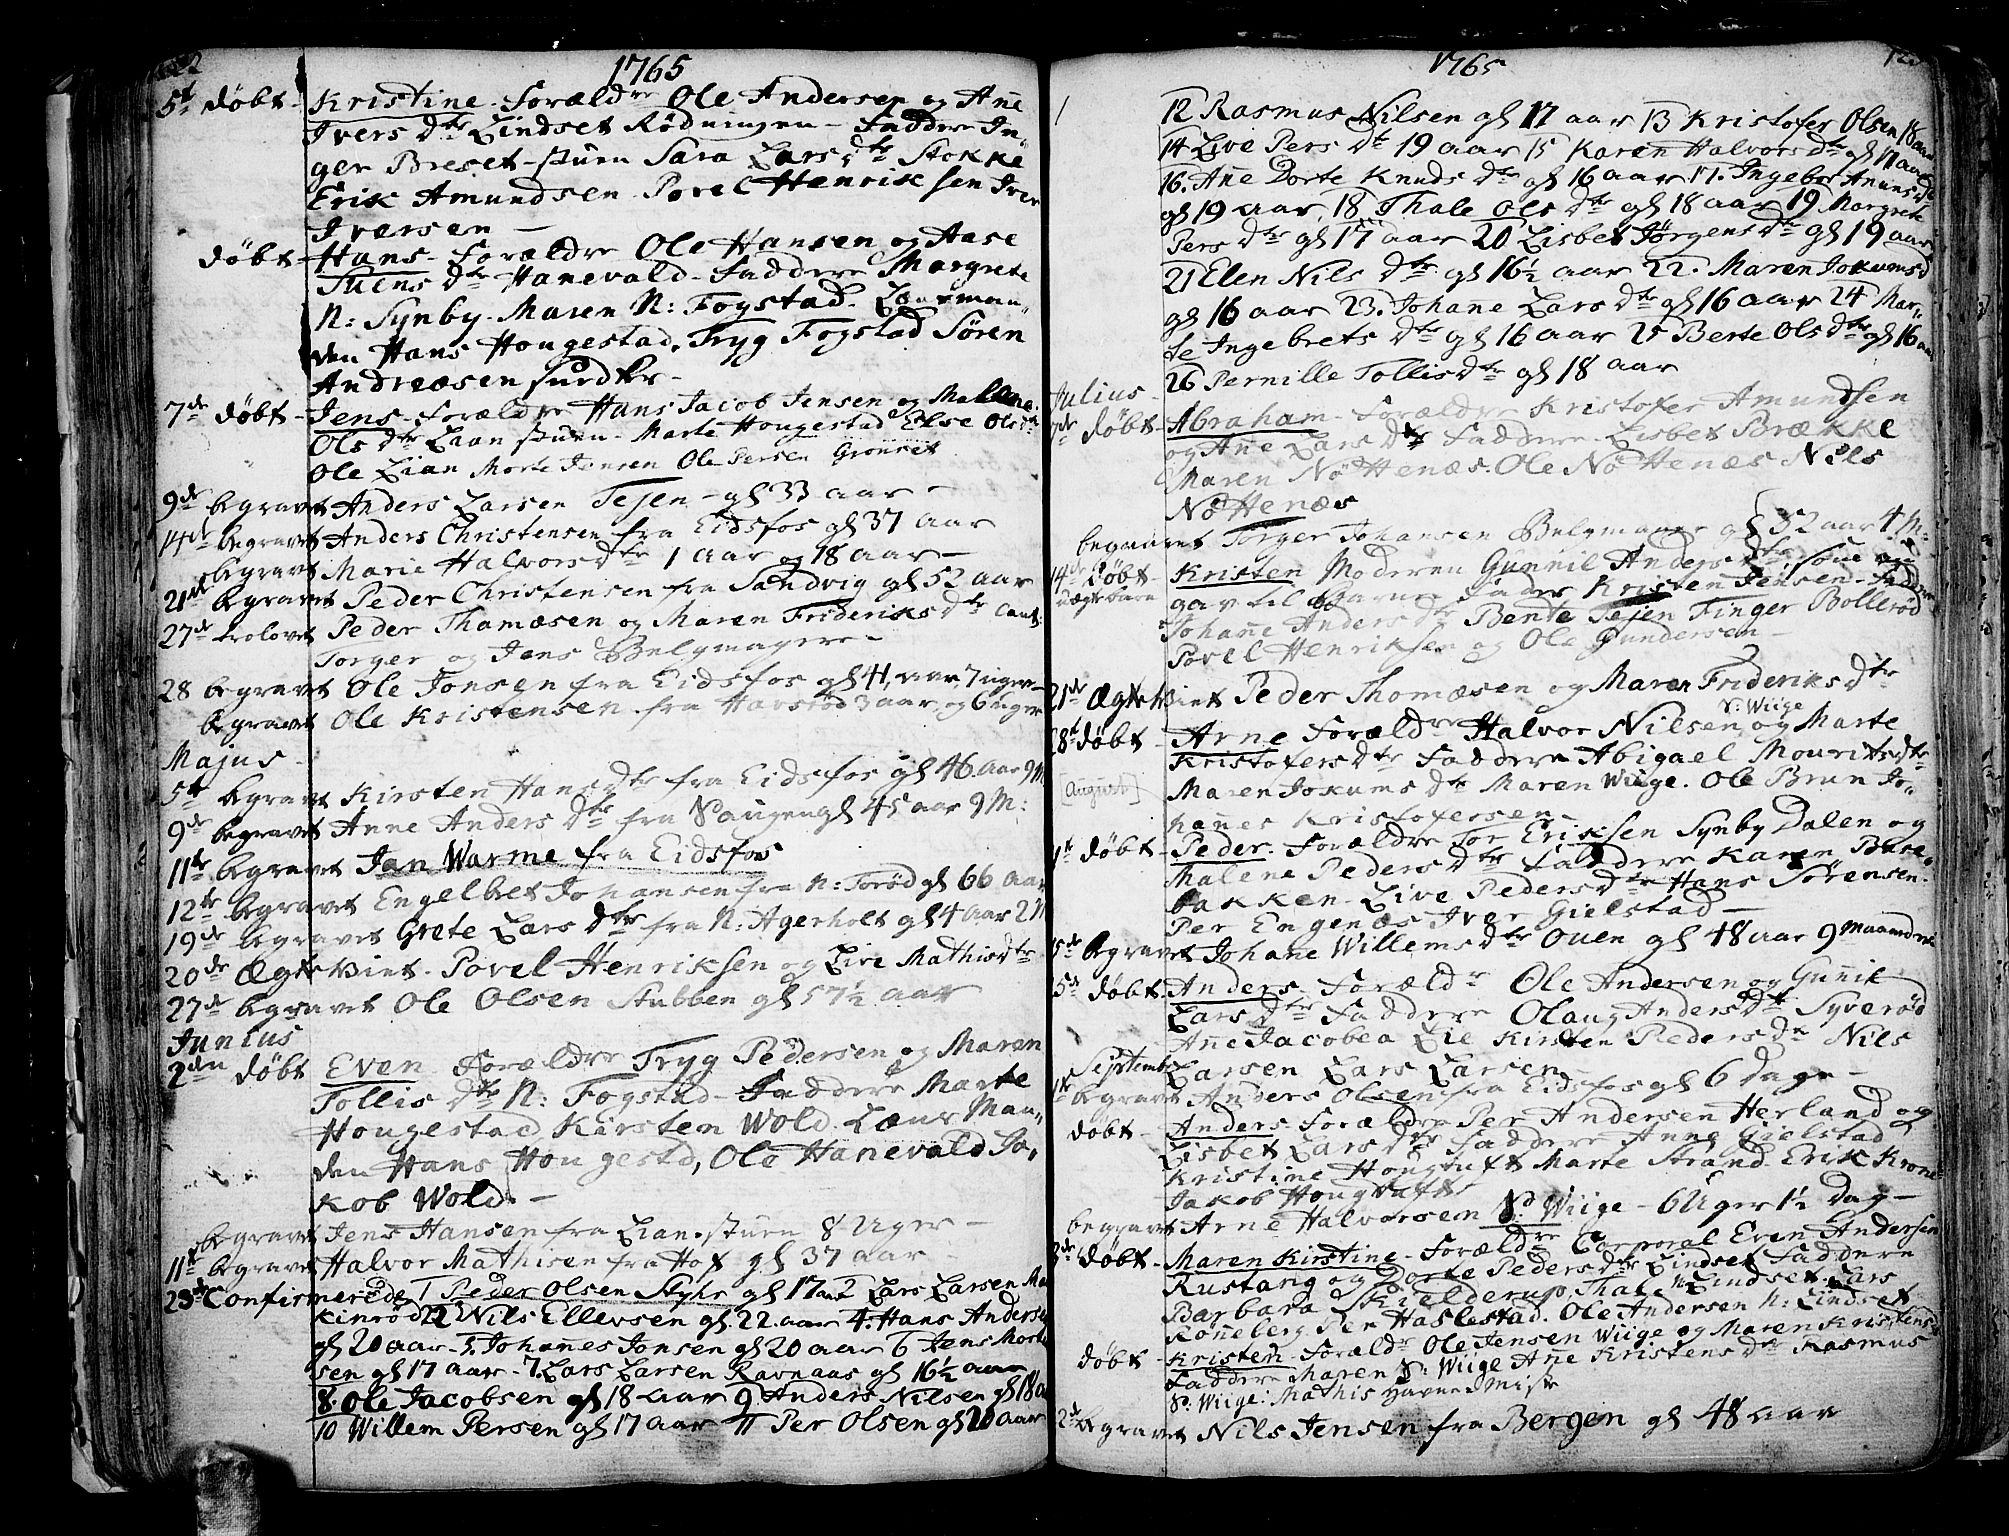 1765
5te døbt - Kristine - Forældre Ole Andersen og Añe
Ivers Dtr Lindset Rødningen - Faddere In-
ger Breset-stuen Sara Lars Dtr Stokke
Erik Amundsen Povel Henriksen Iver
Iversen -
døbt - Hans - Forældre Ole Hansen og Aase
Dtr Hanevald - Faddere Margrete
N: Synby - Maren N: Fogstad. Lænsman-
den Hans Hougestad, Tryg Fogstad Søren
Andreæsen
7de døbt - Jens - Forældre Hans Jacob Jensen og Malene
Ols Dtr Lian stuen - Marte Hougestad Else Ols Dtr
Ole Lian Morte Jonsen Ole Persen Grønset
9de begravet Anders Larsen Tejen - gl 33 aar -
14de begravet Anders Christensen fra Eidsfos gl 37 aar
begravet Marie Halvors Dtr 1 aar og 18 aar -
21de begravet Peder Christensen fra Sandvig gl 52 aar
27de trolovet Peder Thamæsen og Maren Frideriks Dtr Caut:
Torger og Jens Belgmagere -
28 begravet Ole Jonsen fra Eidsfos gl 41, aar, 7 uger -
begravet Ole Kristensen fra Havstød 3 aar, og 6 uger
Majus -
5te begravet Kirsten Hans Dtr fra Eidsfos gl 46 aar 9 M
9de begravet Anne Anders Dtr fra gl 45 aar 9 M:
11te begravet Jan Warme fra Eidsfos
12te begravet Engelbet Johansen fra N: Torød gl 66 aar
19de begravet Grete Lars Dtr fra N: Agerholt gl 4 aar 2 M
20de Ægteviet - Povel Henriksen og Live Mathis Dtr
27de begravet Ole Olsen Stubben gl 57½ aar
Junius
2den døbt Even Forældre Tryg Pedersen og Maren
Tollis Dtr N: Fogstad - Faddere Marte
Hougestad Kirsten Wold. Læns Man-
den Hans Hougestd, Ole Hanevald Ja-
kob Wold. -
begravet Jens Hansen fra Lian-stuen 8 Uger -
11te begravet Halvor Mathisen fra Hof gl 37 aar -
23de Confirmerede 1 Peder Olsen Styhr gl 17 aar 2 Lars Larsen Ma
kinrød 22 Nils Ellevsen gl. 22 aar 4. Hans Anders
gl 20 aar - 5 Johañes Jonsen gl 20 aar 6 Jens Morte
sen gl 17 aar - 7. Lars Larsen Ravnaas gl 16½ aar
8. Ole Jacobsen gl 18 aar 9 Anders Nilsen gl 18 a
10 Willem Persen gl 17 aar 11 Per Olsen gl 20 aar
1765
12 Rasmus Nilsen gl 17 aar 13 Kristofer Olsen 18 aar
14 Live Pers Dtr 19 aar 15 Karen Halvors Dtr gl 17 aar
16. Añe Dorte Knuds Dtr gl 16 aar 17. Ingebor Amuns D
gl 19 aar. 18. Thale Ols Dtr gl 18 aar 19 Margrete
Pers Dtr gl 17 aar 20 Lisbet Jørgens Dtr gl 19 aar
21 Elen Nils Dtr gl 16½ aar 22. Maren Jokumsd
gl 16 aar 23. Johane Lars Dtr gl 16 aar 24 Mar-
te Ingebrets Dtr gl 16 aar 25 Berte Ols Dtr gl 16 aar
26 Pernille Tollis Dtr gl 18 aar
Julius -
7de døbt - Abraham - Forældre Kristofer Amundsen
og Añe Lars Dtr Faddere - Lisbet Brække
Maren Nøttenæs. Ole Nøttenæs Nils
Nøttenæs
begravet Torger Johansen Belgmager gl 52 aar 4 M:
14de Døbt - Kristen Moderen Guñil Anders Dtr som
uægte barn gav til Barne Fader Kristen Jensen - Faddere
Johañe Anders Dtr Bente Tejen Finger Bollerød
Povel Henriksen og Ole Gundersen -
21de Ægteviet Peder Thomæsen og Maren Frideriks Dtr
28de døbt - Arne Forældre Halvor Nilsen N: Wiige og Marte
Kristofers Dtr Faddere Abigael Mourits Dtr
[August] Maren Jokums Dtr Maren Wiige. Ole Brun Jo-
hañes Kristofersen -
1te døbt - Peder. Forældre Tor Eriksen Synby Dalen og
Malene Peders Dtr Faddere Karen
bakken - Live Peders Dtr Hans Sørensen
Per Engenæs Iver Gielstad -
5de begravet Johane Willems Dtr Ouen gl 48 aar 9 maaneder
5de døbt - Anders - Foræld Ole Andersen og Guñil
Lars Dtr Faddere Olaug Anders Dtr Syverød
Añe Jacobea Lie Kirsten Peders Dtr Nils
Larsen Lars Larsen
Septemb
1te begravet Anders Olsen fra Eidsfos gl 6 Dage -
døbt - Anders Forældre Per Andersen Herland og
Lisbet Lars Dtr Faddere Anne Gielstad
Kristine Hougtuft Marte Strand Erik Krone
Jakob Hougtuft
begravet Arne Halvorsen N: Wiige - 6 Uger 1½ Dag -
8de døbt - Maren Kirstine - Forældre Corporal Even Andersen
Rustang og Dorte Peders Dtr Lindset Faddere
Barbara Skielderup, Thale N: Lindset Lars
Røñeberg Per Haslestad. Ole Andersen N: Lindset
døbt - Kristen - Forældre Ole Jensen Wiige og Maren Kristens D
Faddere Maren N: Wiige Añe Kristens Dtr Rasmus
N: Wiige: Mathis
2de begravet Nils Jensen fra Bergen gl 48 aar